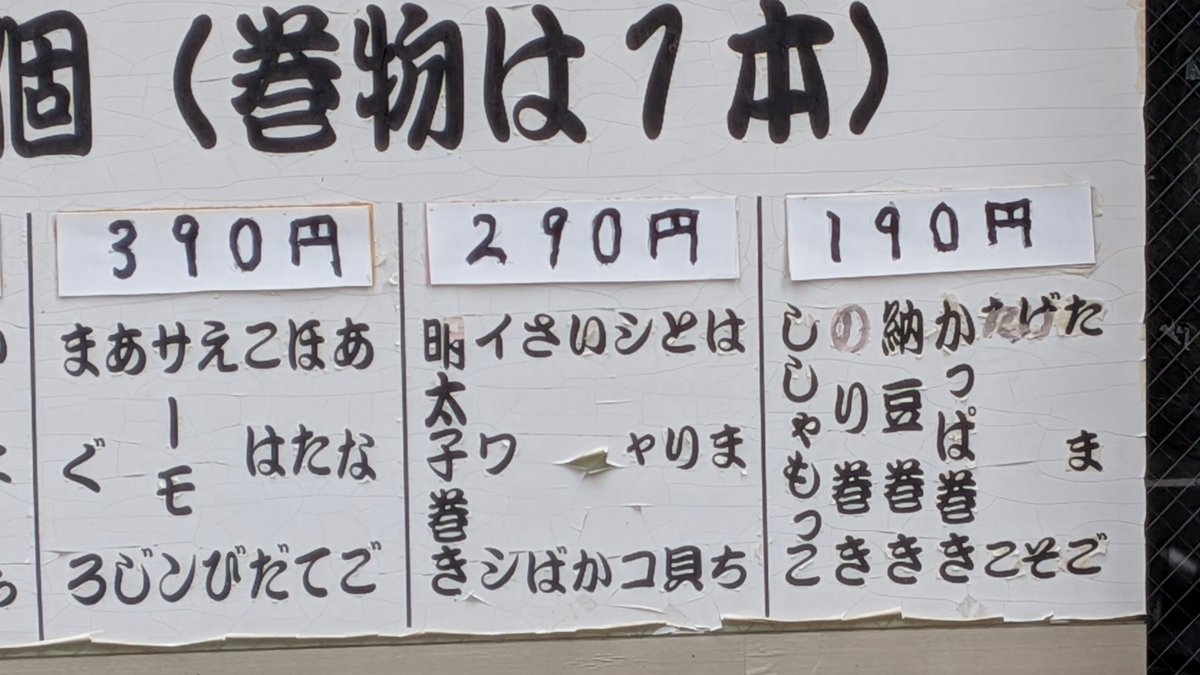 個（巻物は1本）
190円
たまご
げそ
たこ
かっぱ巻き
納豆巻き
のり巻き
ししゃもっこ
290円
はまち
とり貝
シャコ
いか
さば
イワシ
明太子巻き
390円
あなご
ほたて
こはだ
えび
サーモン
あじ
まぐろ